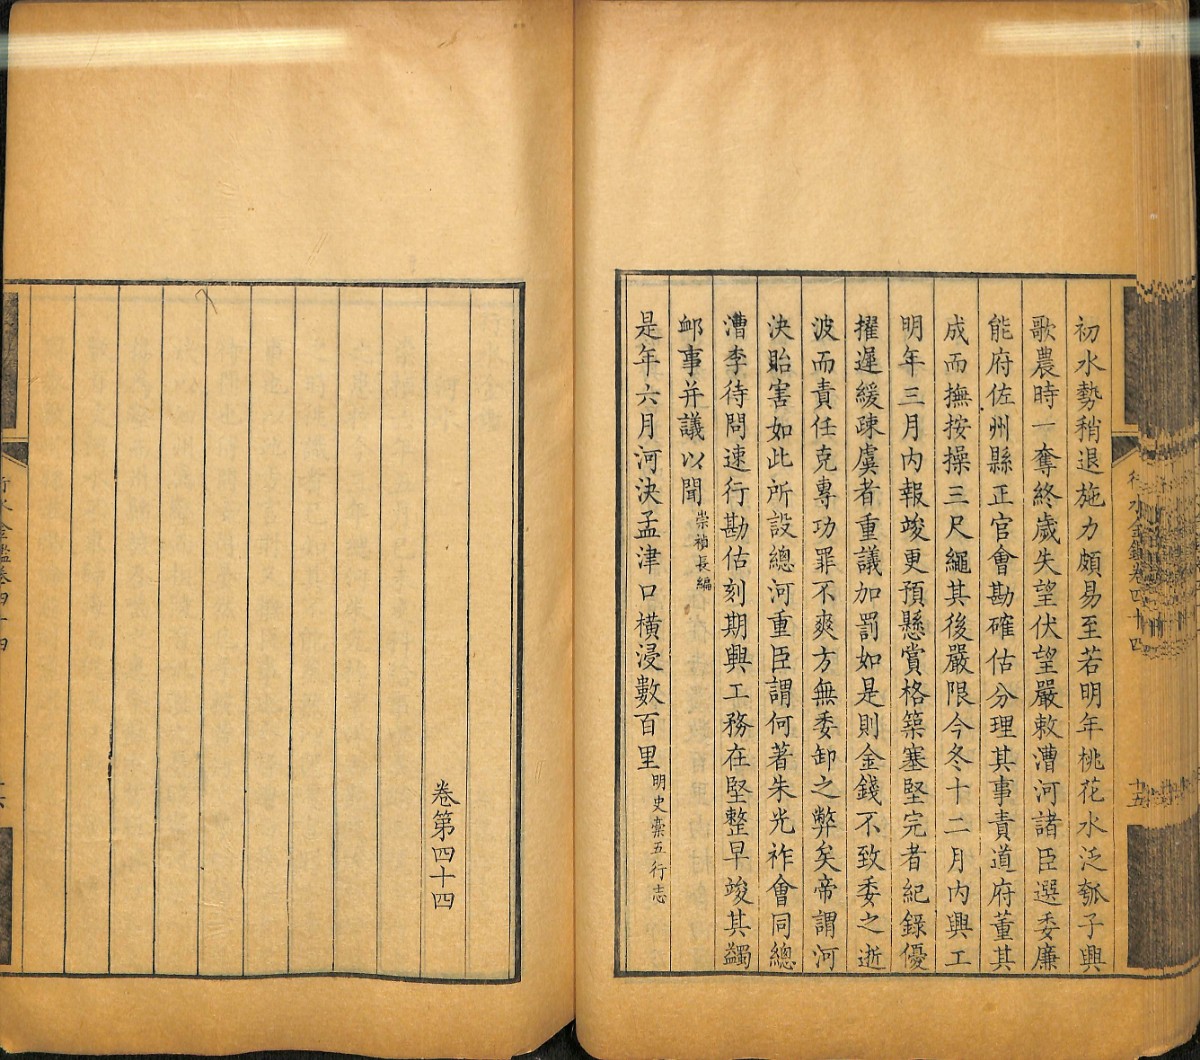 初水勢稍退施力頗易至若明年桃花水泛瓠子興
歌農時一奪終歲失望伏望嚴敕漕河諸臣選委廉
能府佐州縣正官會勘確估分理其事責道府董其
成而撫按操三尺繩其後嚴限今冬十二月內興工
明年三月內報竣更預懸賞格築塞堅完者紀錄優
擢遲緩疎虞者重議加罰如是則金錢不致委之逝
波而責任克專功罪不爽方無委卸之弊矣帝謂河
決貽害如此所設總河重臣謂何著朱光祚會同總
漕李待問速行勘估刻期興工務在堅整早竣其蠲
䘏事并議以聞崇禎長編
是年六月河決孟津口橫浸數百里明史稾五行志
行水金鑑卷四十四
十五
卷第四十四
行水金鑑卷四十四